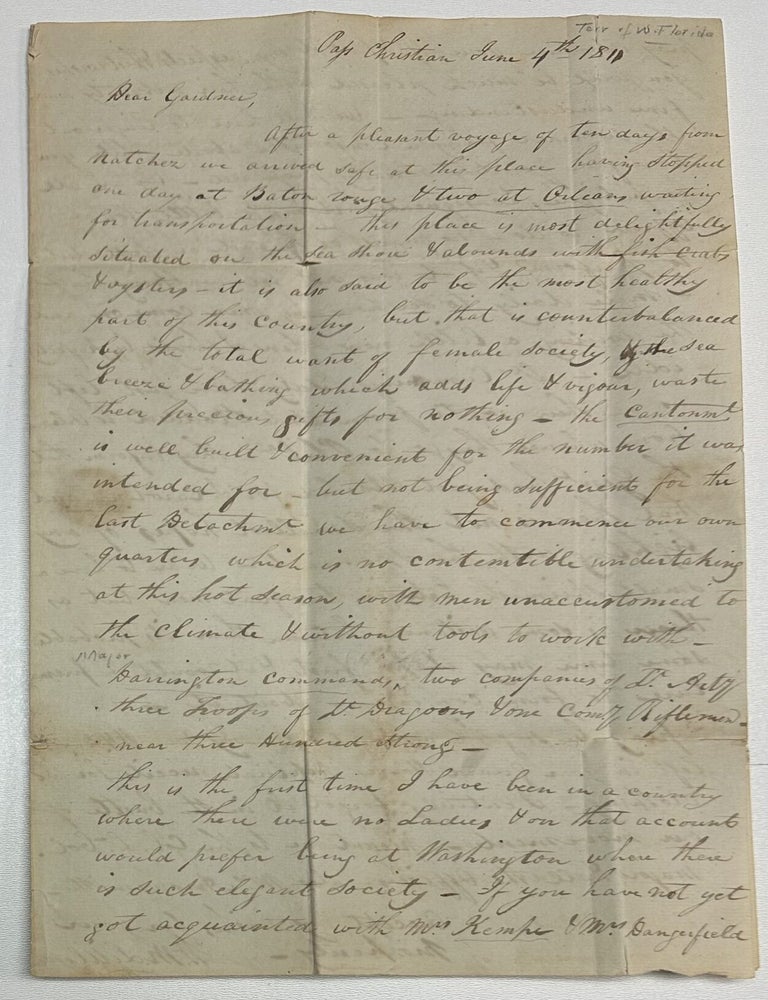 Terr of W. Florida
Pass Christian June 4th 1811
Dear Gardner,
After a pleasant voyage of ten days from
Natchez we arrived safe at this place having stopped
one day at Baton rouge & two at Orleans waiting
for transportation – this place is most delightfully
situated on the sea shore & abounds with fish crabs
& oysters – it is also said to be the most healthy
part of this country, but that is counterbalanced
by the total want of female society, & the sea
breeze & bathing which adds life & vigour, waste
their precious gifts for nothing – the Cantonmt
is well built & convenient for the number it was
intended for – but not being sufficient for the
last Detachmt we have to commence our own
quarters which is no contemtible undertaking
at this hot season, with men unaccustomed to
the climate & without tools to work with –
Major
Darrington commands, two companies of Lt. Arty
three Troops of Lt Dragoons & one Comy Riflemen –
near three Hundred strong –
this is the first time I have been in a country
where there were no Ladies & on that account
would prefer being at Washington where there
is such elegant society – If you have not yet
got acquainted with Mrs Kempe & Mrs Dangerfield